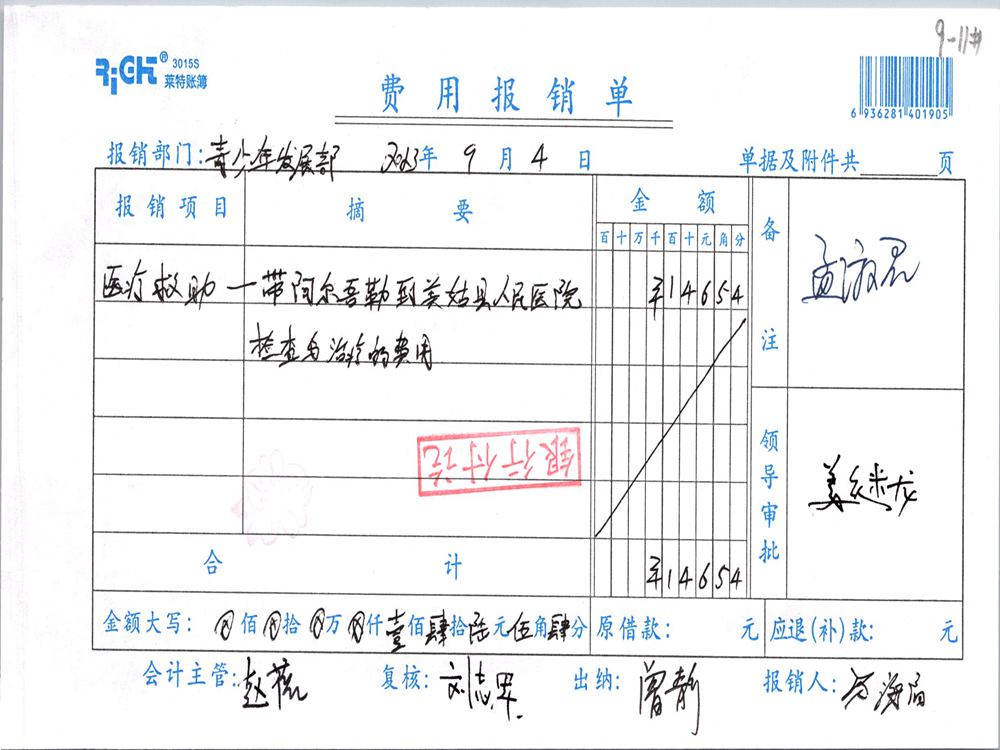 9-11#
RiGHT® 3015S
莱特账簿
费用报销单
6 936281 401905
报销部门:青少年发展部 2013年 9 月 4 日 单据及附件共 页
报销项目 摘要 金额 备注
百 十 万 千 百 十 元 角 分
医疗救助 一带阿尔吾勒到美姑县人民医院 ¥14654
检查与治疗的费用
银行付讫
领导审批
合计 ¥14654
金额大写: ⊗佰⊗拾⊗万⊗仟壹佰肆拾陆元伍角肆分 原借款: 元 应退(补)款: 元
会计主管: 赵 复核: 刘志 出纳: 曾静 报销人: 海